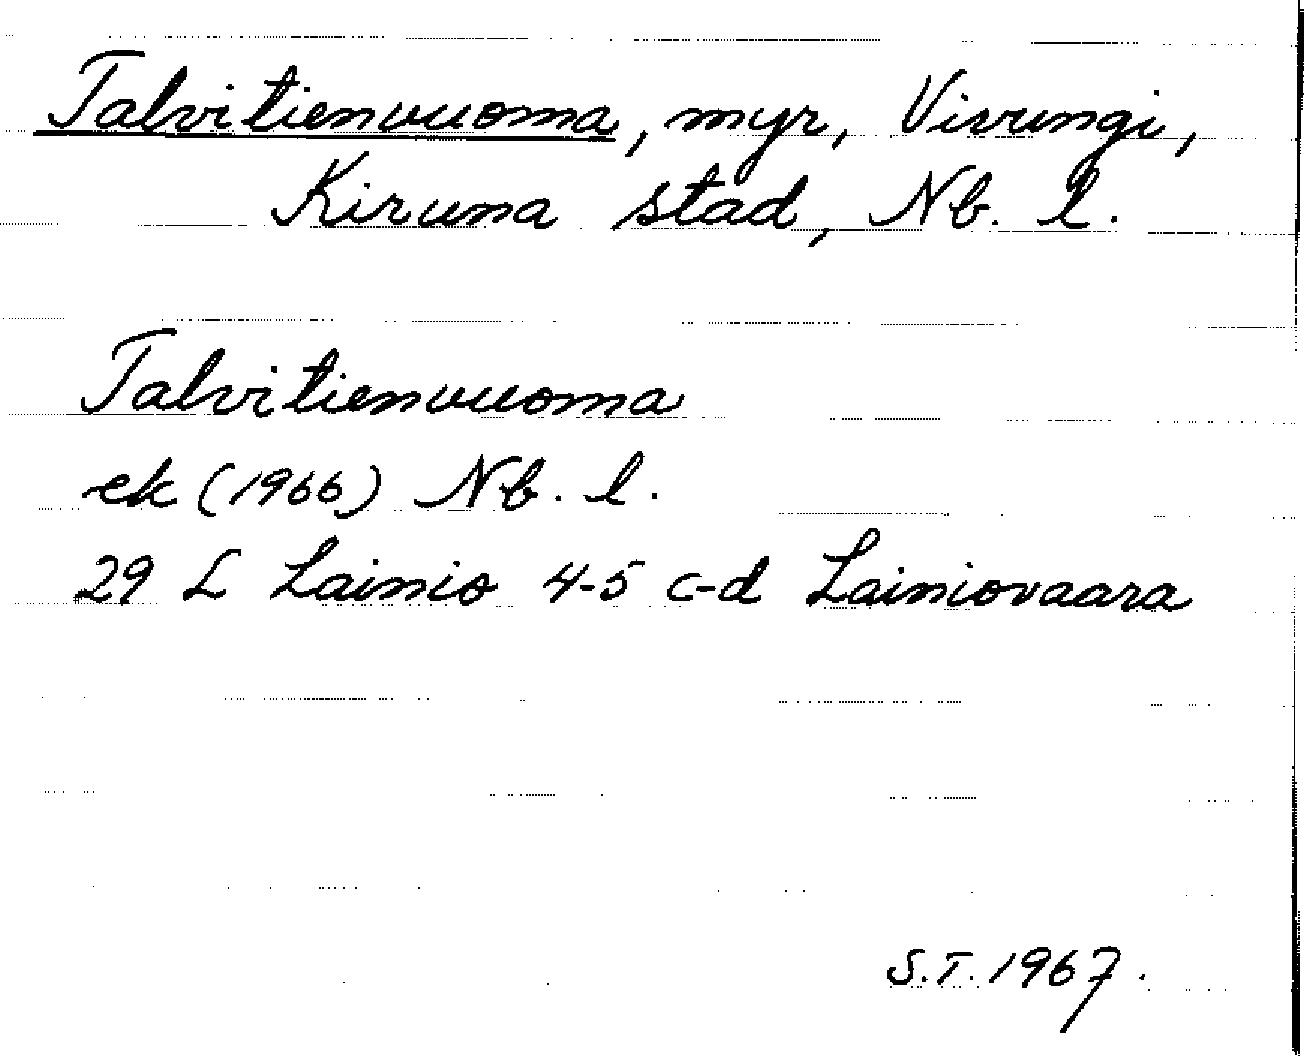 Talvitienvuoma, myr, Vivungi,
Kiruna stad, Nb. l.
Talvitienvuoma
ek (1966) Nb. l.
29 L Lainio 4-5 c-d Lainiovaara
S.T. 1967.